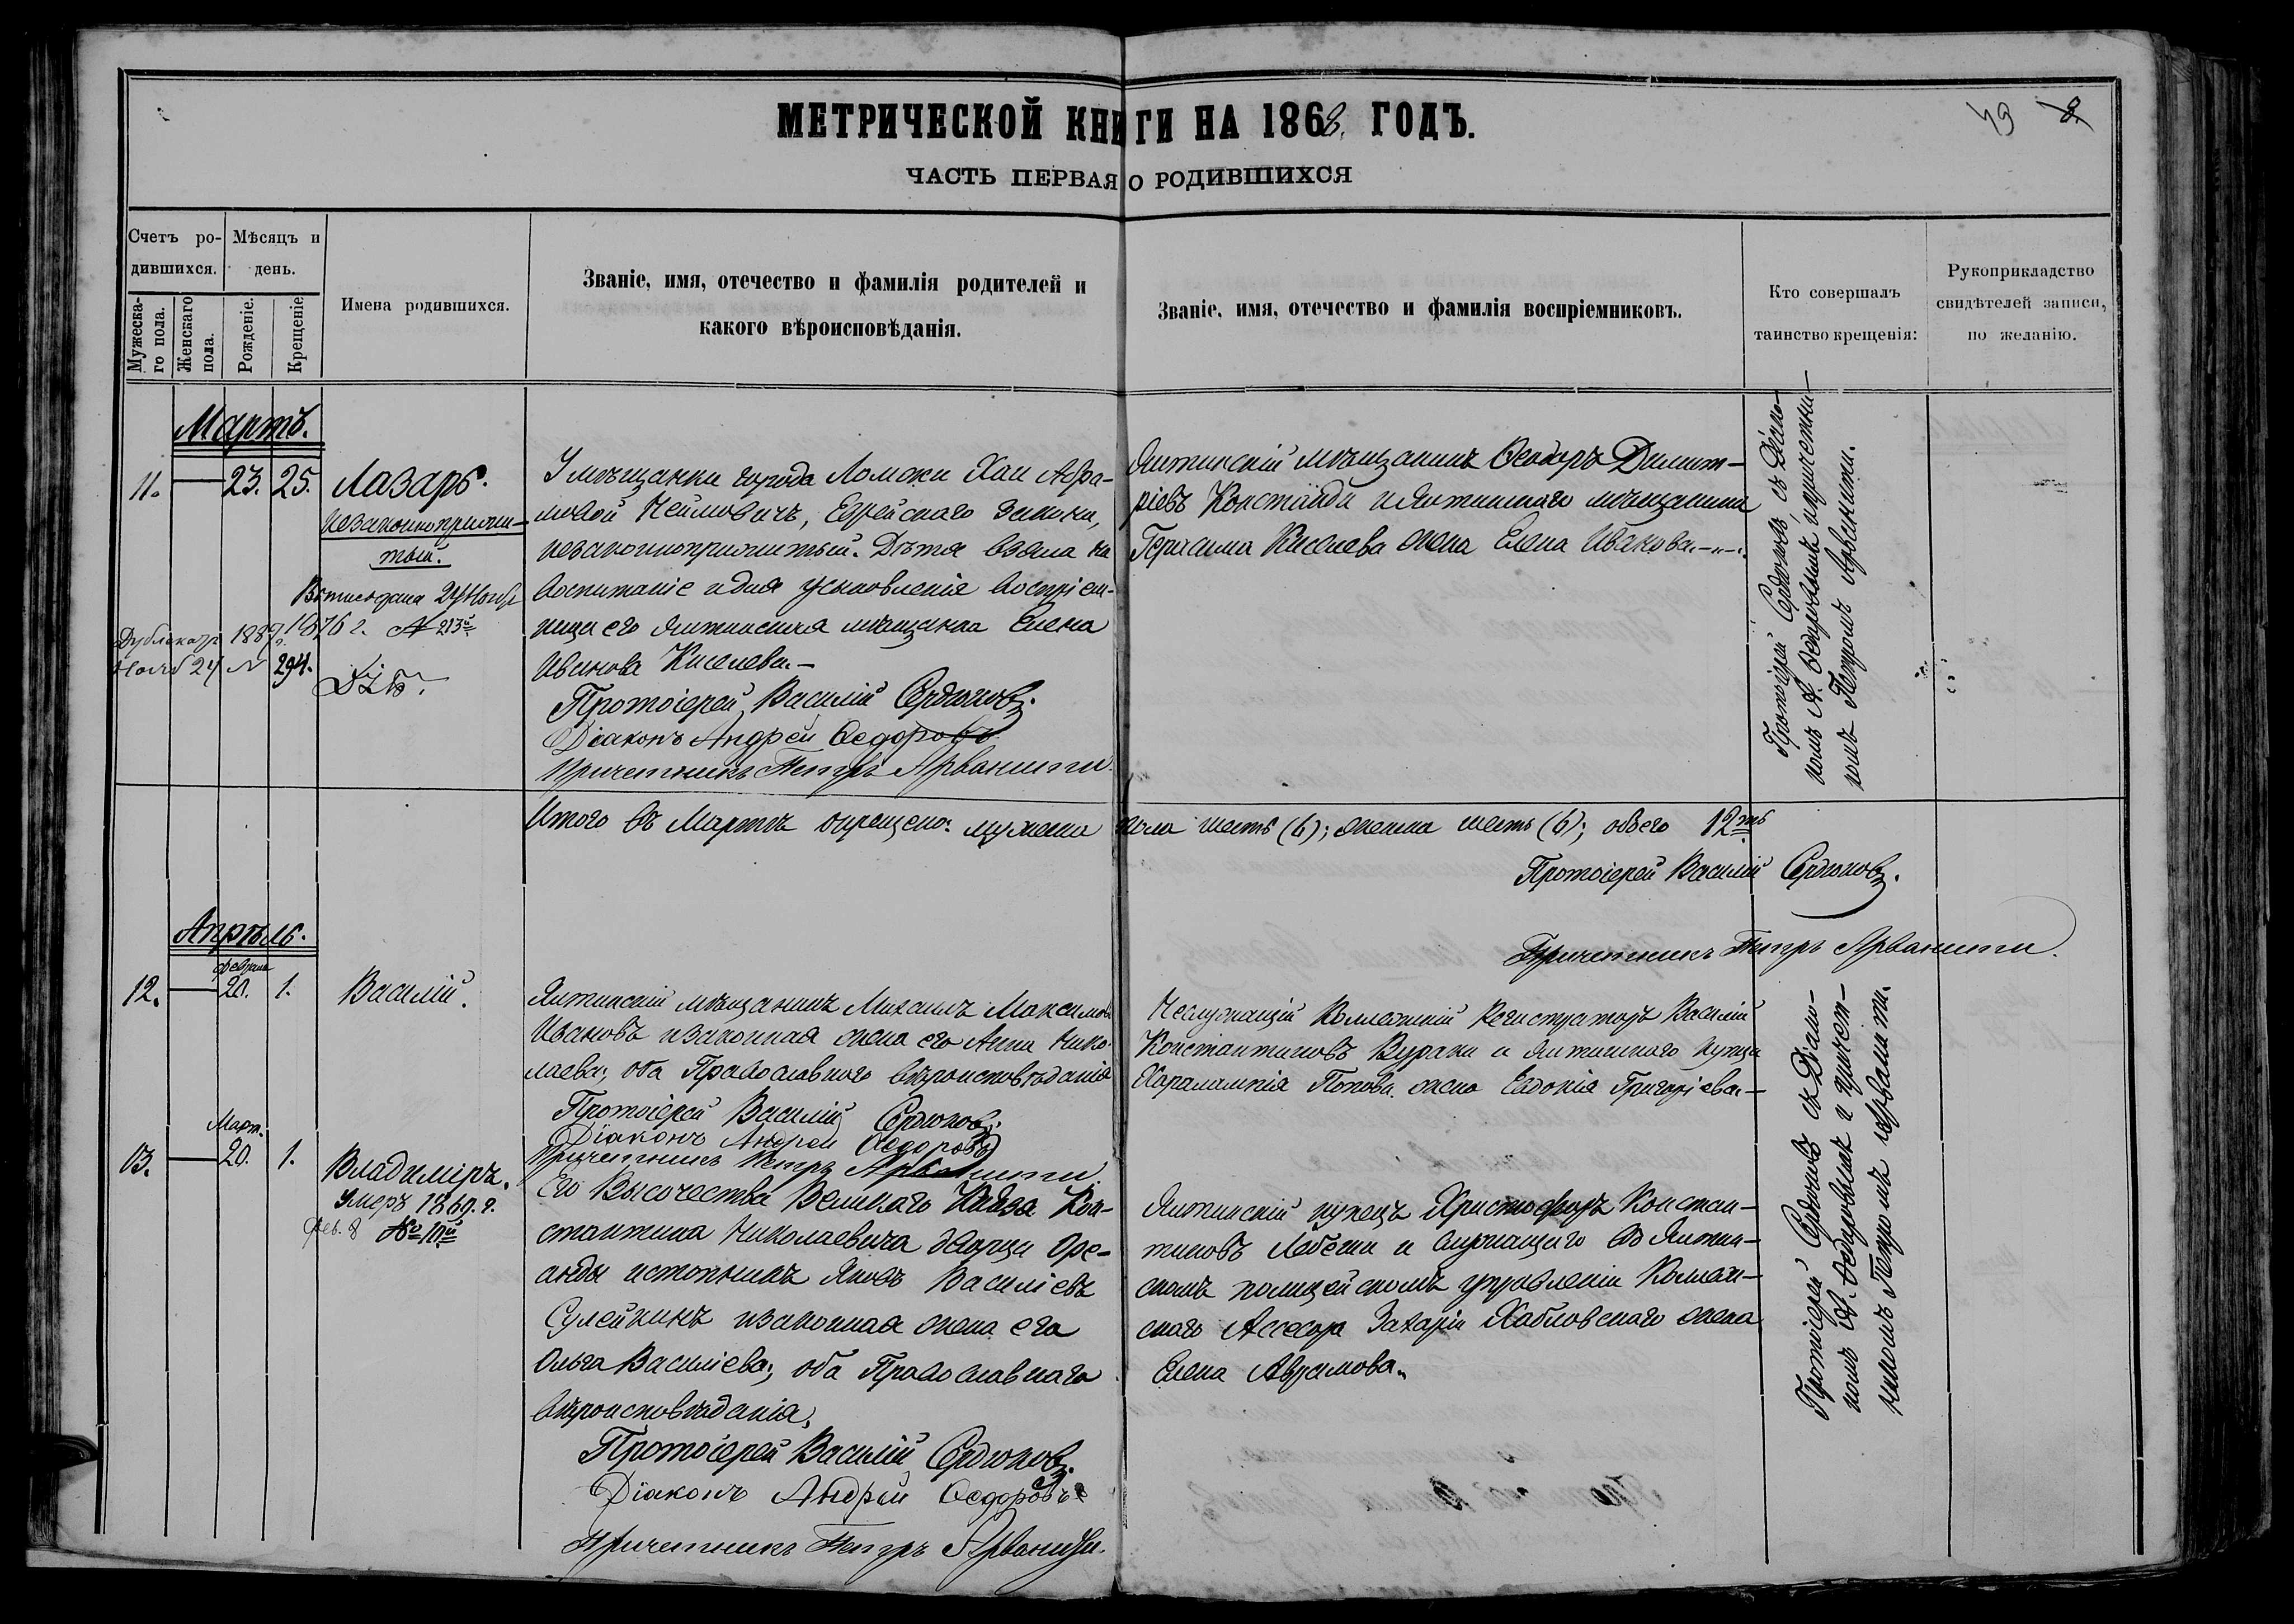 МЕТРИЧЕСКОЙ КНИГИ НА 1868. ГОДЪ.
ЧАСТЬ ПЕРВАЯ О РОДИВШИХСЯ
Счетъ ро-
дившихся.
Мѣсяцъ и
день.
Мужеска-
го пола.
Женскаго
пола.
Рожденіе.
Крещеніе
Имена родившихся.
Званіе, имя, отечество и фамилія родителей и
какого вѣроисповѣданія.
Званіе, имя, отечество и фамилія воспріемниковъ.
Кто совершалъ
таинство крещенія:
Рукоприкладство
свидѣтелей записи,
по желанію.
Мартъ.
11. — 23. 25.
Лазарь.
незаконноприжи-
тый.
1876 г. № 213й
Дубликатъ 1887 г.
Нояб 24 № 294.
У мѣщанки города Ломжи Хаи Абра-
мовой Неймовичъ, Еврейскаго закона,
незаконноприжитый. Дѣтя взяла на
воспитаніе и для усыновленія воспріем-
ница его Ялтинская мѣщанка Елена
Иванова Киселева.—
Протоіерей Василій Сердюковъ.
Діаконъ Андрей Ѳедоровъ
Причетникъ Петръ Арванити.
Ялтинскій мѣщанинъ Ѳеодоръ Димит-
ріевъ Констанди и Ялтинскаго мѣщанина
Герасима Киселева жена Елена Иванова.—
Протоіерей Сердюковъ съ Діако-
номъ А. Ѳедоровымъ и причетни-
комъ Петромъ Арванити.
Итого въ Мартѣ крещено: мужеска пола шесть (6); женска шесть (6); обоего 12ть
Протоіерей Василій Сердюковъ.
Причетникъ Петръ Арванити.
Апрѣль.
февраля
12. — 20. 1.
Василій.
Ялтинскій мѣщанинъ Михаилъ Максимовъ
Ивановъ и законная жена его Анна Нико-
лаева; оба Православного вѣроисповѣданія
Протоіерей Василій Сердюковъ.
Діаконъ Андрей Ѳедоровъ
Причетникъ Петръ Арванити
Неслужащій Коллежскій Регистраторъ Василій
Константиновъ Вураки и Ялтинскаго купца
Харалампія Попова жена Евдокія Григоріева—
Март.
13. — 20. 1.
Владиміръ.
Умеръ 1869. г.
Фев. 8 № 10й
Его Высочества Великаго Князя Кон-
стантина Николаевича дворца Оре-
анды истопникъ Яковъ Василіевъ
Сулейкинъ и законная жена его
Ольга Василіева; оба Православнаго
вѣроисповѣданія.
Протоіерей Василій Сердюковъ.
Діаконъ Андрей Ѳедоровъ
Причетникъ Петръ Арванити.
Ялтинскій купецъ Христофоръ Констан-
тиновъ Лобечи и служащего въ Ялтин-
скомъ полицейскомъ управленіи Коллеж-
скаго Ассесора Захарія Хабловскаго жена
Елена Аврамова.
Протоіерей Сердюковъ съ Діако-
номъ А. Ѳедоровымъ и причет-
никомъ Петромъ Арванити.